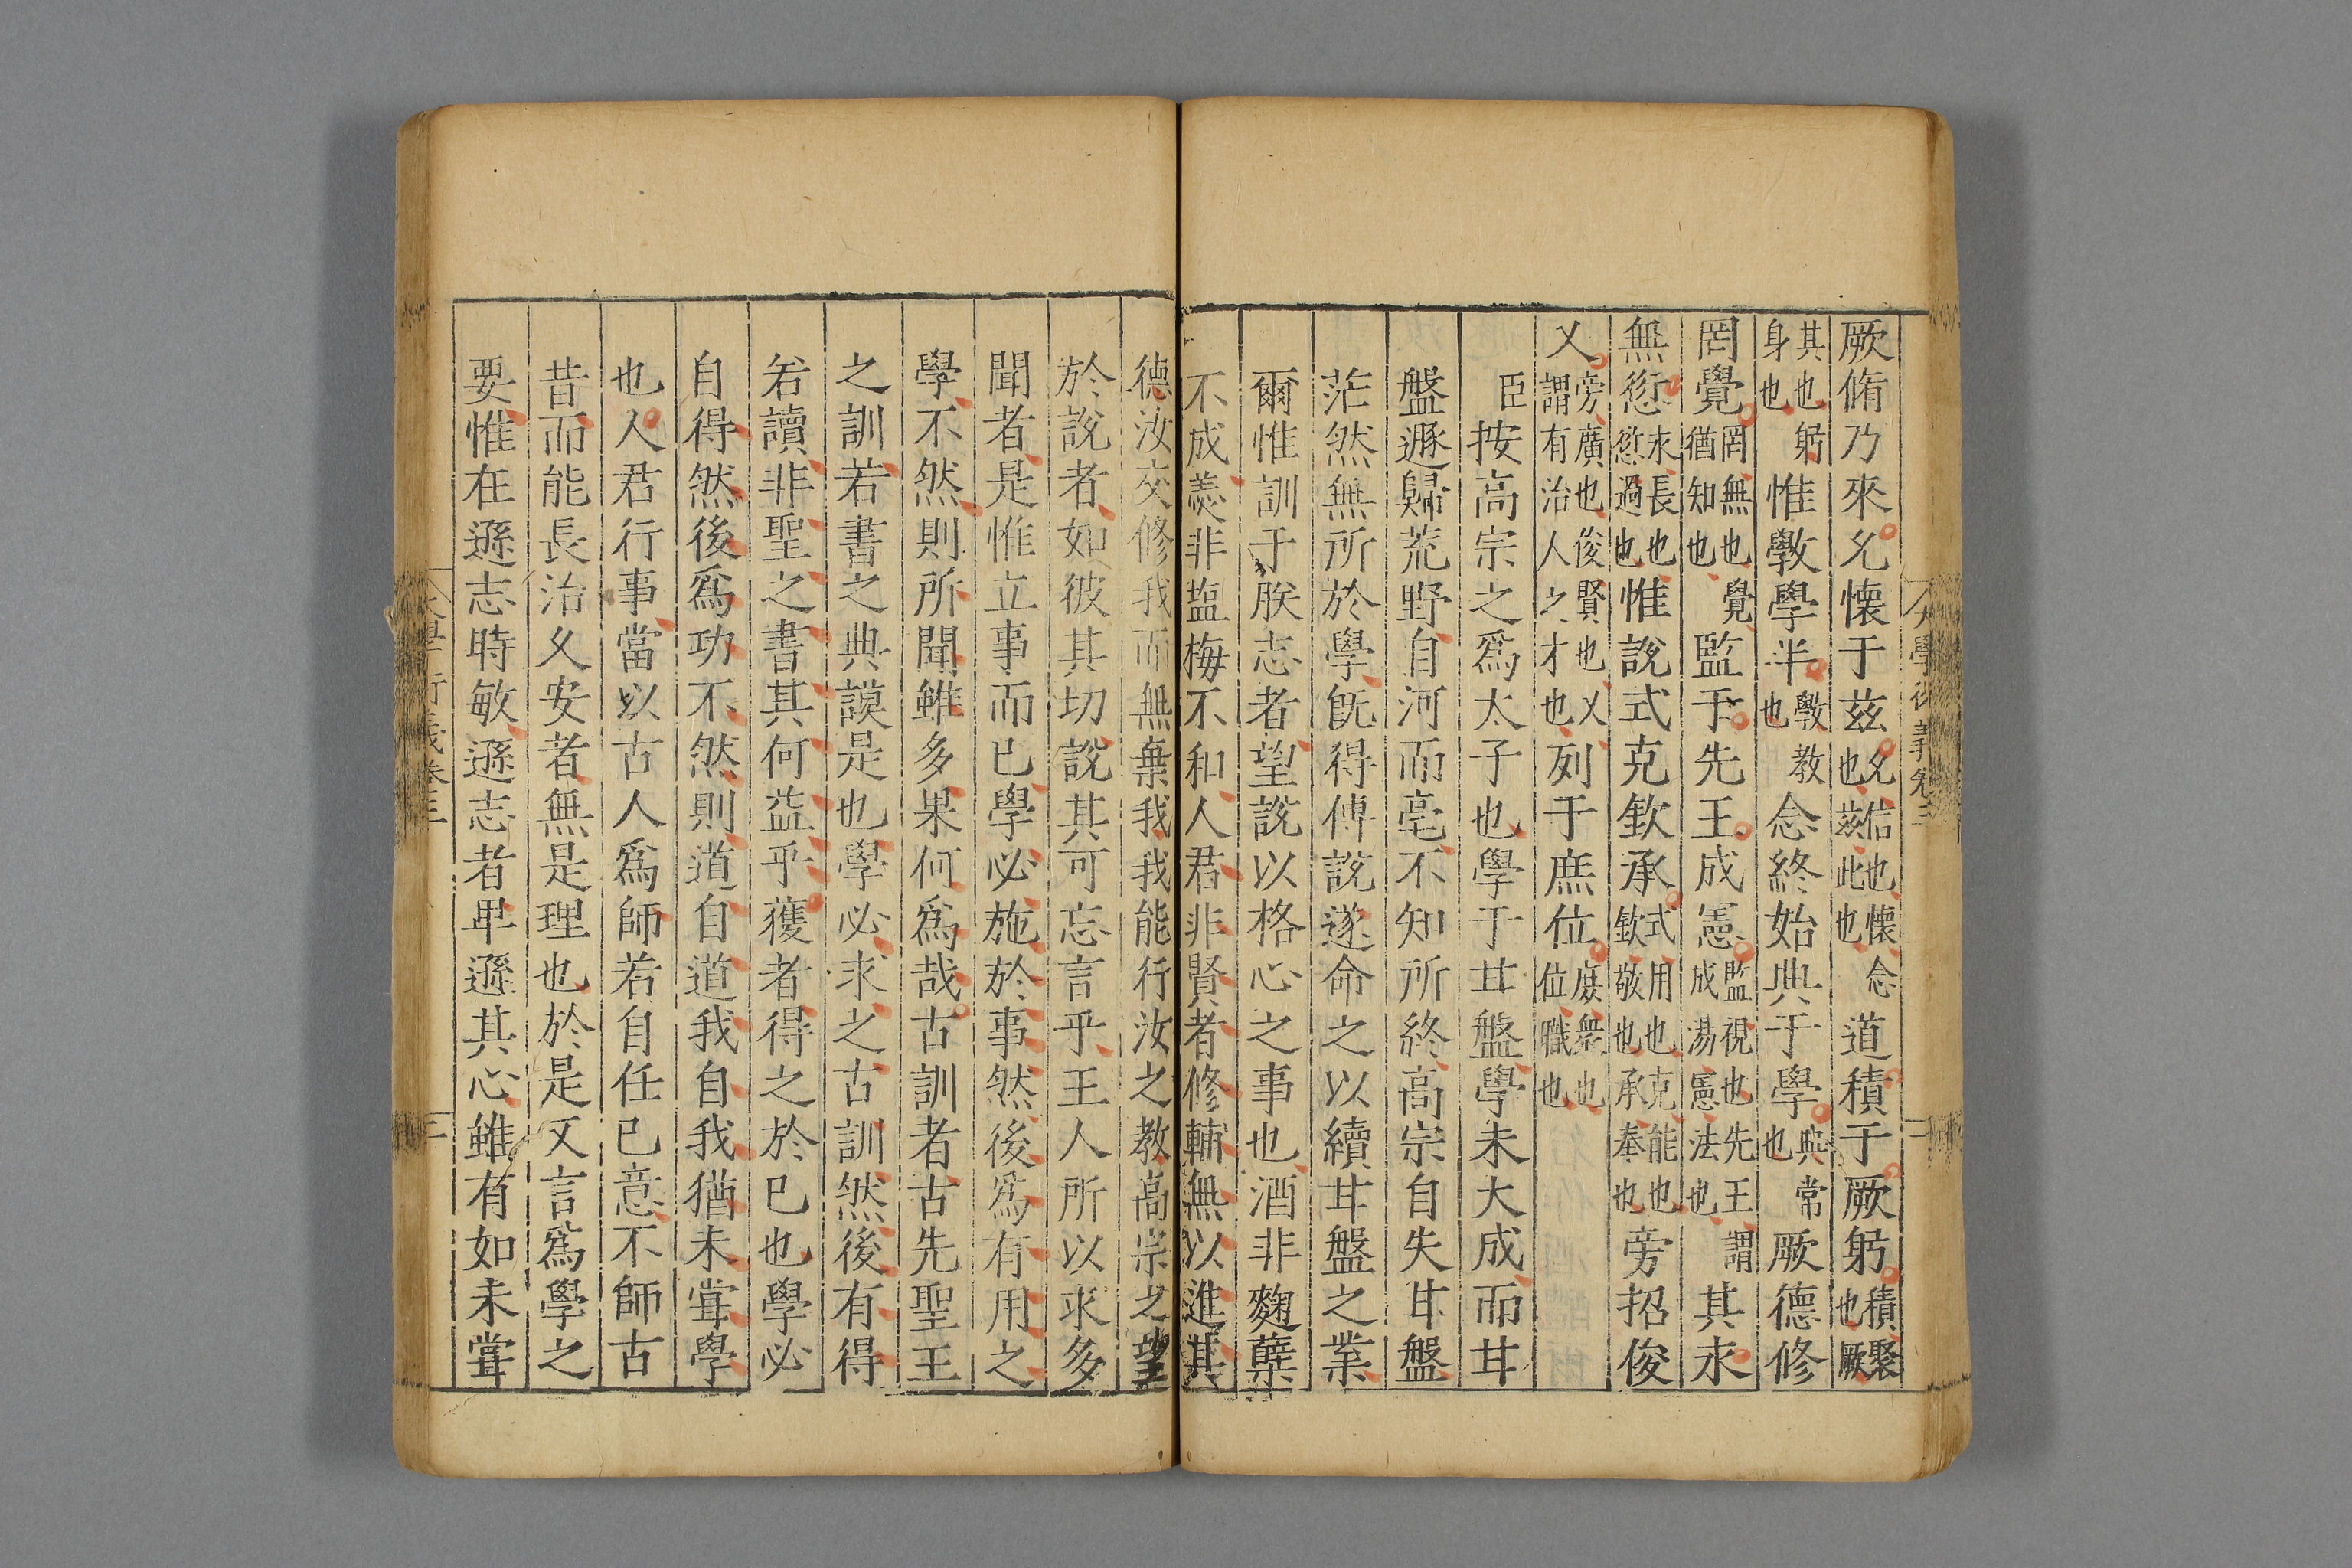 大學衍義卷三
厥脩乃來允懷于茲允信也懷念也茲此也道積于厥躬積聚也厥
其也躬身也惟斆學半斆教也念終始典于學典常也厥德修
罔覺罔無也覺猶知也監于先王成憲監視也先王謂成湯憲法也其永
無愆永長也愆過也惟說式克欽承式用也克能也欽敬也承奉也旁招俊
乂旁廣也俊賢也乂謂有治人之才也列于庶位庶衆也位職也
臣按高宗之爲太子也學于甘盤學未大成而甘
盤遯歸荒野自河而亳不知所終高宗自失甘盤
茫然無所於學旣得傅說遂命之以續甘盤之業
爾惟訓于朕志者望說以格心之事也酒非麴蘖
不成羹非塩梅不和人君非賢者修輔無以進其
德汝交修我而無棄我我能行汝之教高宗之望
於說者如彼其切說其可忘言乎王人所以求多
聞者是惟立事而已學必施於事然後爲有用之
學不然則所聞雖多果何爲哉古訓者古先聖王
之訓若書之典謨是也學必求之古訓然後有得
若讀非聖之書其何益乎獲者得之於己也學必
自得然後爲功不然則道自道我自我猶未甞學
也人君行事當以古人爲師若自任己意不師古
昔而能長治久安者無是理也於是又言爲學之
要惟在遜志時敏遜志者卑遜其心雖有如未甞
大學衍義卷三